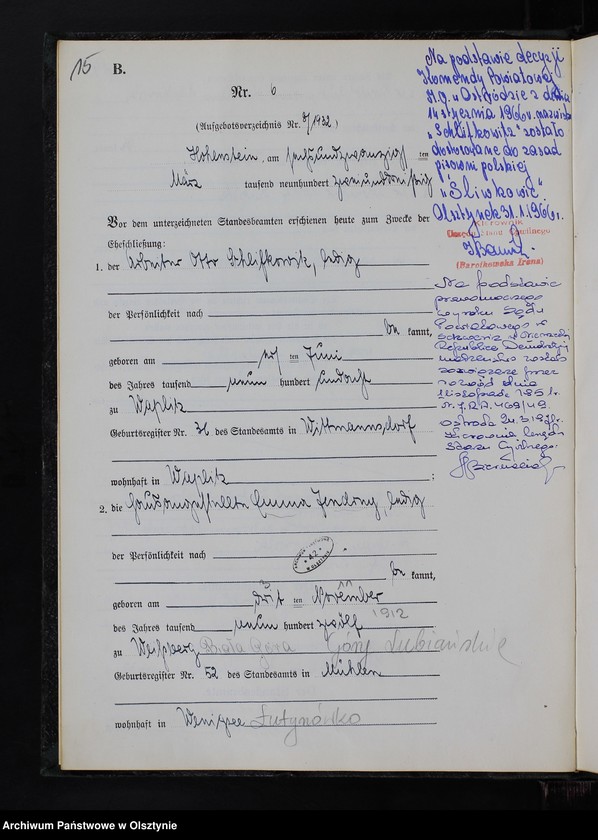 15
B.
Nr. 6
(Aufgebotsverzeichnis Nr. 8/1932)
Hohenstein, am sechsundzwanzigsten
März tausend neunhundert zweiunddreißig
Vor dem unterzeichneten Standesbeamten erschienen heute zum Zwecke der
Eheschließung:
1. der Arbeiter Otto Schlifkowitz, ledig
der Persönlichkeit nach
be kannt,
geboren am ten Juni
des Jahres tausend neun hundert undacht
zu Waplitz
Geburtsregister Nr. 36 des Standesamts in Wittmannsdorf
wohnhaft in Waplitz ;
2. die Hausangestellte Emma ledig
der Persönlichkeit nach
be kannt,
geboren am drit ten November
des Jahres tausend neun hundert zwölf 1912
zu Biała Góra Góry Lubiańskie
Geburtsregister Nr. 52 des Standesamts in Mühlen
wohnhaft in Lutynówko
Na podstawie decyzji
Komendy Powiatowej
M.O. w Ostródzie z dnia
14 stycznia 1966 r. nazwisko
"Schlifkowitz" zostało
dostosowane do zasad
pisowni polskiej
"Śliwkowic".
Olsztynek 31.1.1966 r.
Kierownik
Urzędu Stanu Cywilnego
(Barcikowska Irena)
Na podstawie
prawomocnego
wyroku Sądu
Powiatowego w
Republice Demokratycznej
małżeństwo zostało
rozwiązane przez
rozwód dnia
Ostróda
Kierownik Urzędu
Stanu Cywilnego
Archiwum Państwowe w Olsztynie